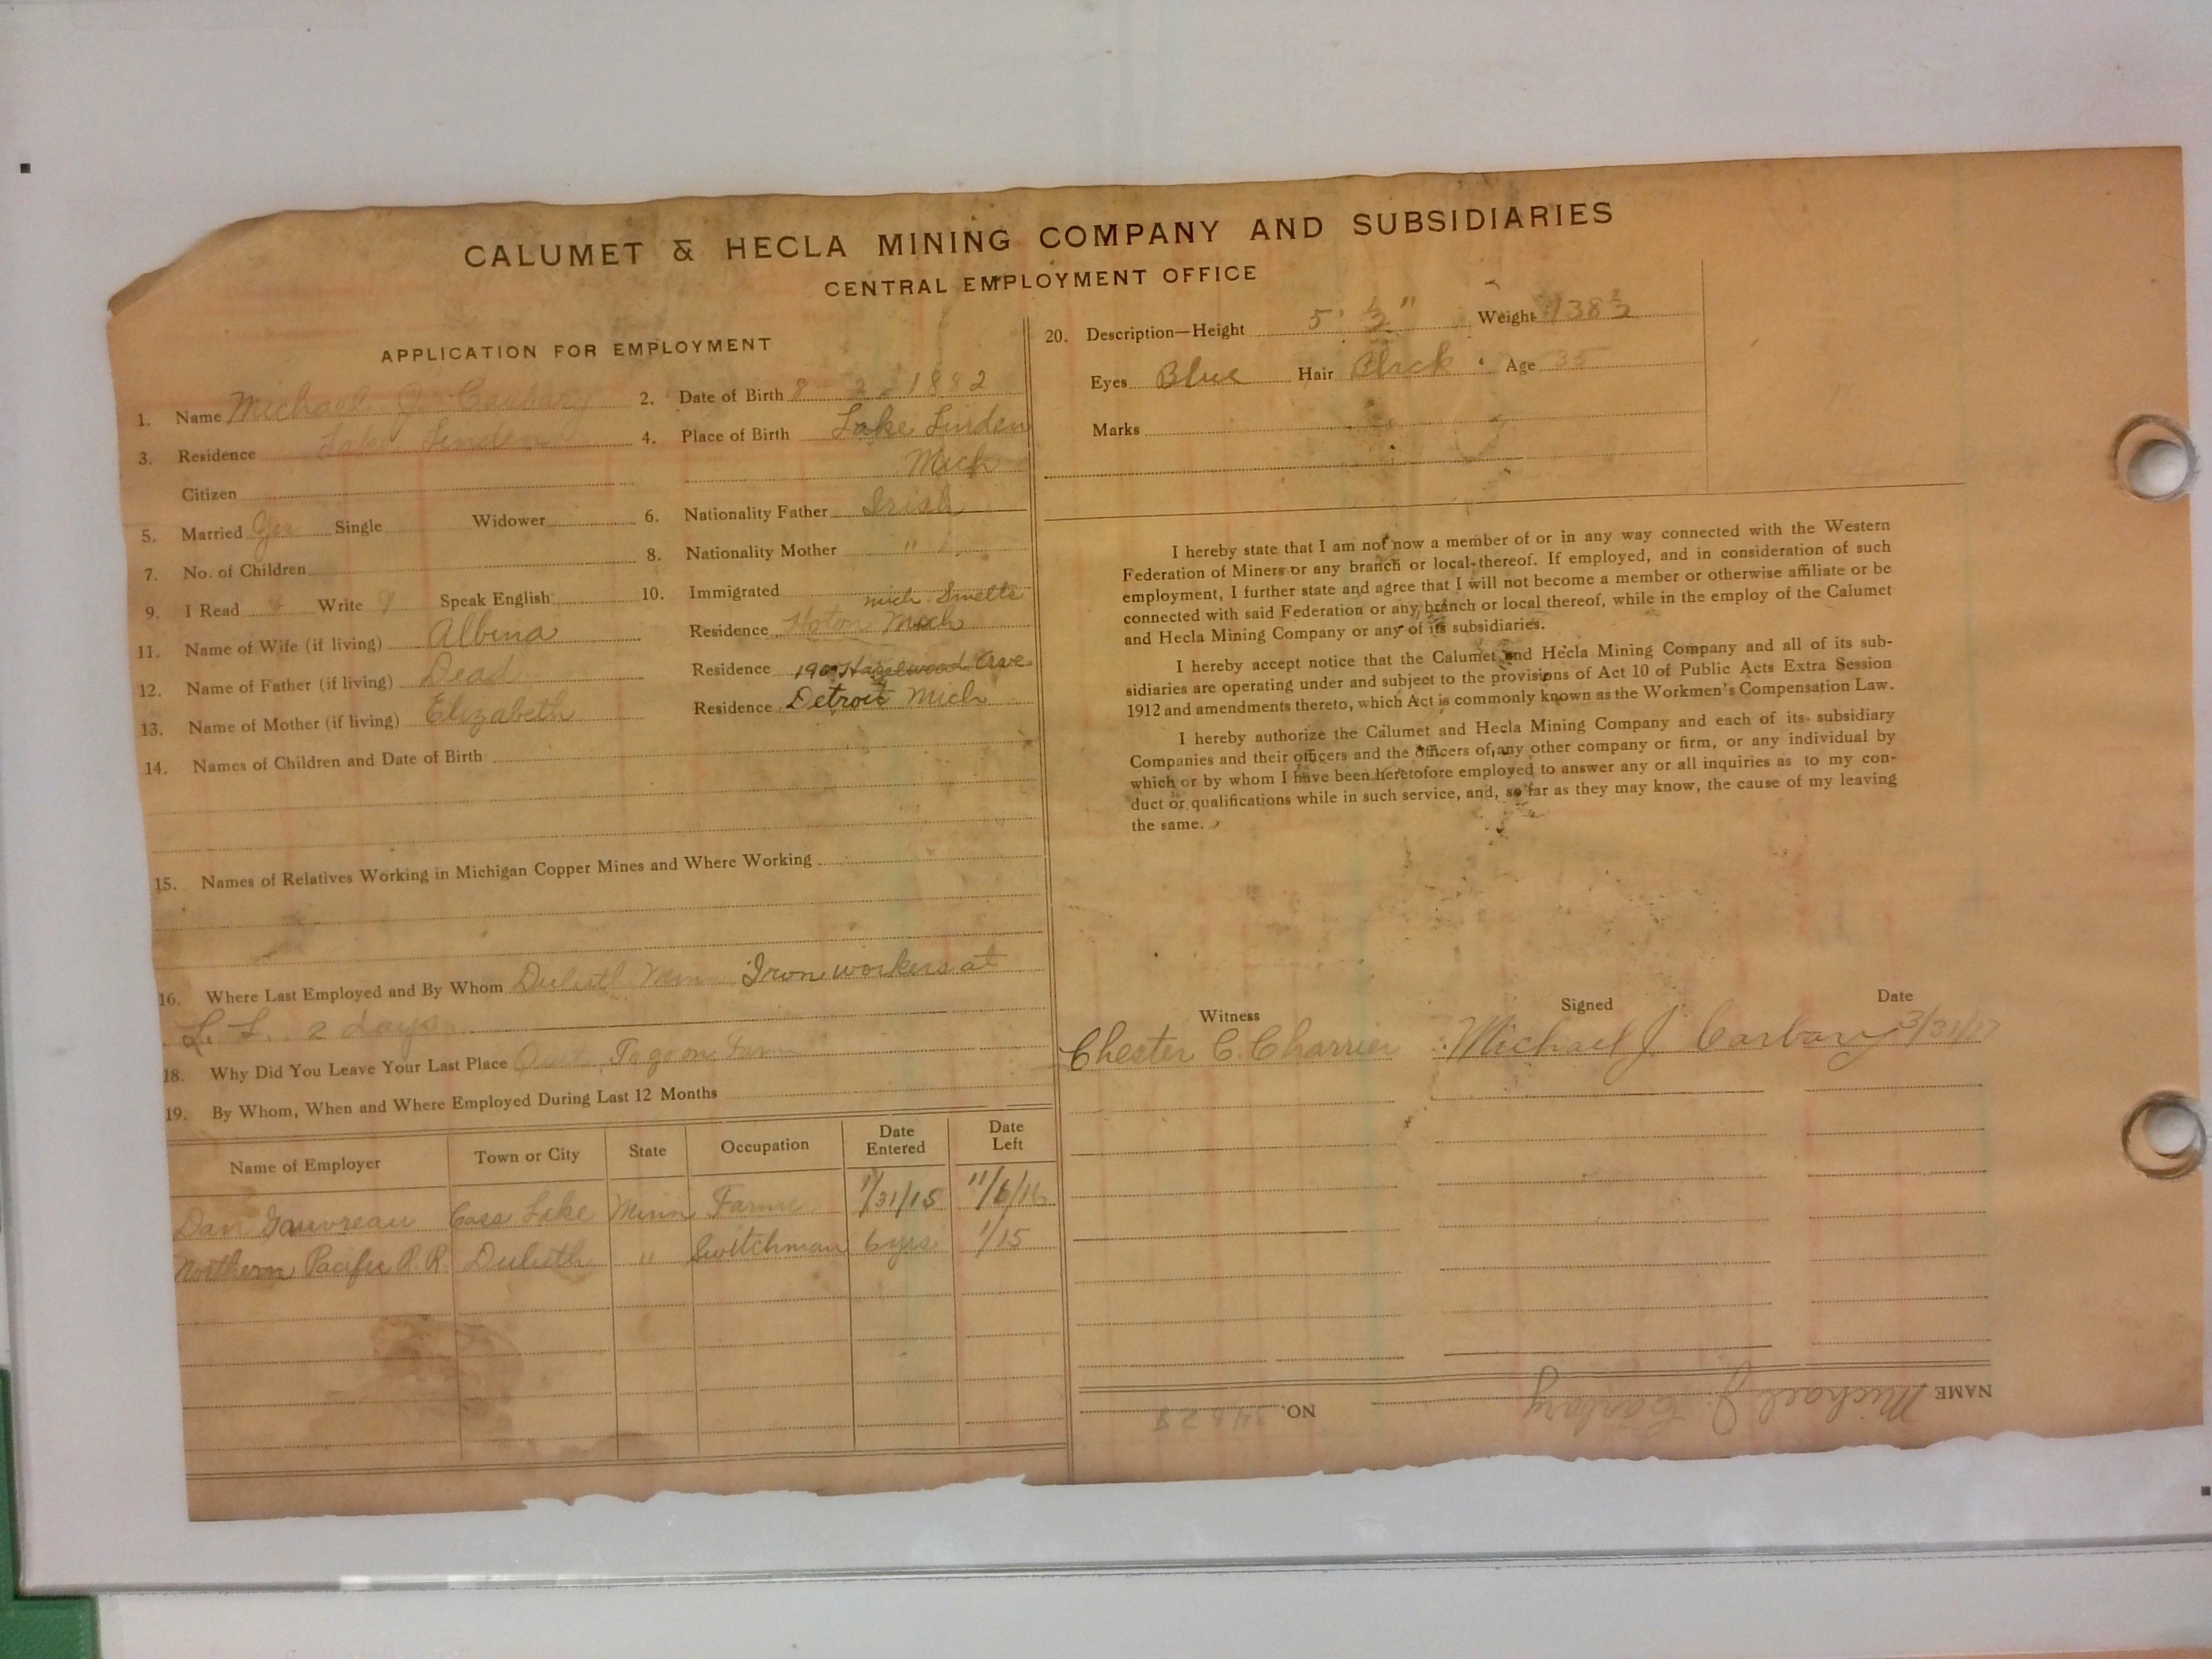 CALUMET & HECLA MINING COMPANY AND SUBSIDIARIES
CENTRAL EMPLOYMENT OFFICE
APPLICATION FOR EMPLOYMENT
1. Name Michael J. Carbary
2. Date of Birth 8 2 - 1882
3. Residence Lake Linden
4. Place of Birth Lake Linden
Mich
Citizen
5. Married Yes Single Widower
6. Nationality Father Irish
7. No. of Children
8. Nationality Mother "
9. I Read Write Speak English
10. Immigrated
mich Smelts
11. Name of Wife (if living) Albina
Residence Hoton Mich
12. Name of Father (if living) Dead
Residence 190 Hazelwood Ave.
13. Name of Mother (if living) Elizabeth
Residence Detroit Mich
14. Names of Children and Date of Birth
15. Names of Relatives Working in Michigan Copper Mines and Where Working
16. Where Last Employed and By Whom Duluth Minn Iron workers at
L. L. 2 days
18. Why Did You Leave Your Last Place Quit To go on Farm
19. By Whom, When and Where Employed During Last 12 Months
Name of Employer Town or City State Occupation Date Entered Date Left
Dan Gauvreau Cass Lake Minn Farme 1/31/15 11/6/16
Northern Pacific R.R. Duluth " Switchman 6 yrs. 1/15
20. Description—Height 5' ½" Weight 138½
Eyes Blue Hair Black Age 35
Marks
I hereby state that I am not now a member of or in any way connected with the Western
Federation of Miners or any branch or local thereof. If employed, and in consideration of such
employment, I further state and agree that I will not become a member or otherwise affiliate or be
connected with said Federation or any branch or local thereof, while in the employ of the Calumet
and Hecla Mining Company or any of its subsidiaries.
I hereby accept notice that the Calumet and Hecla Mining Company and all of its sub-
sidiaries are operating under and subject to the provisions of Act 10 of Public Acts Extra Session
1912 and amendments thereto, which Act is commonly known as the Workmen's Compensation Law.
I hereby authorize the Calumet and Hecla Mining Company and each of its subsidiary
Companies and their officers and the officers of any other company or firm, or any individual by
which or by whom I have been heretofore employed to answer any or all inquiries as to my con-
duct or qualifications while in such service, and, so far as they may know, the cause of my leaving
the same.
Witness Signed Date
Chester C. Charrier Michael J. Carbary 3/31/17
NAME Michael J. Carbary
NO.